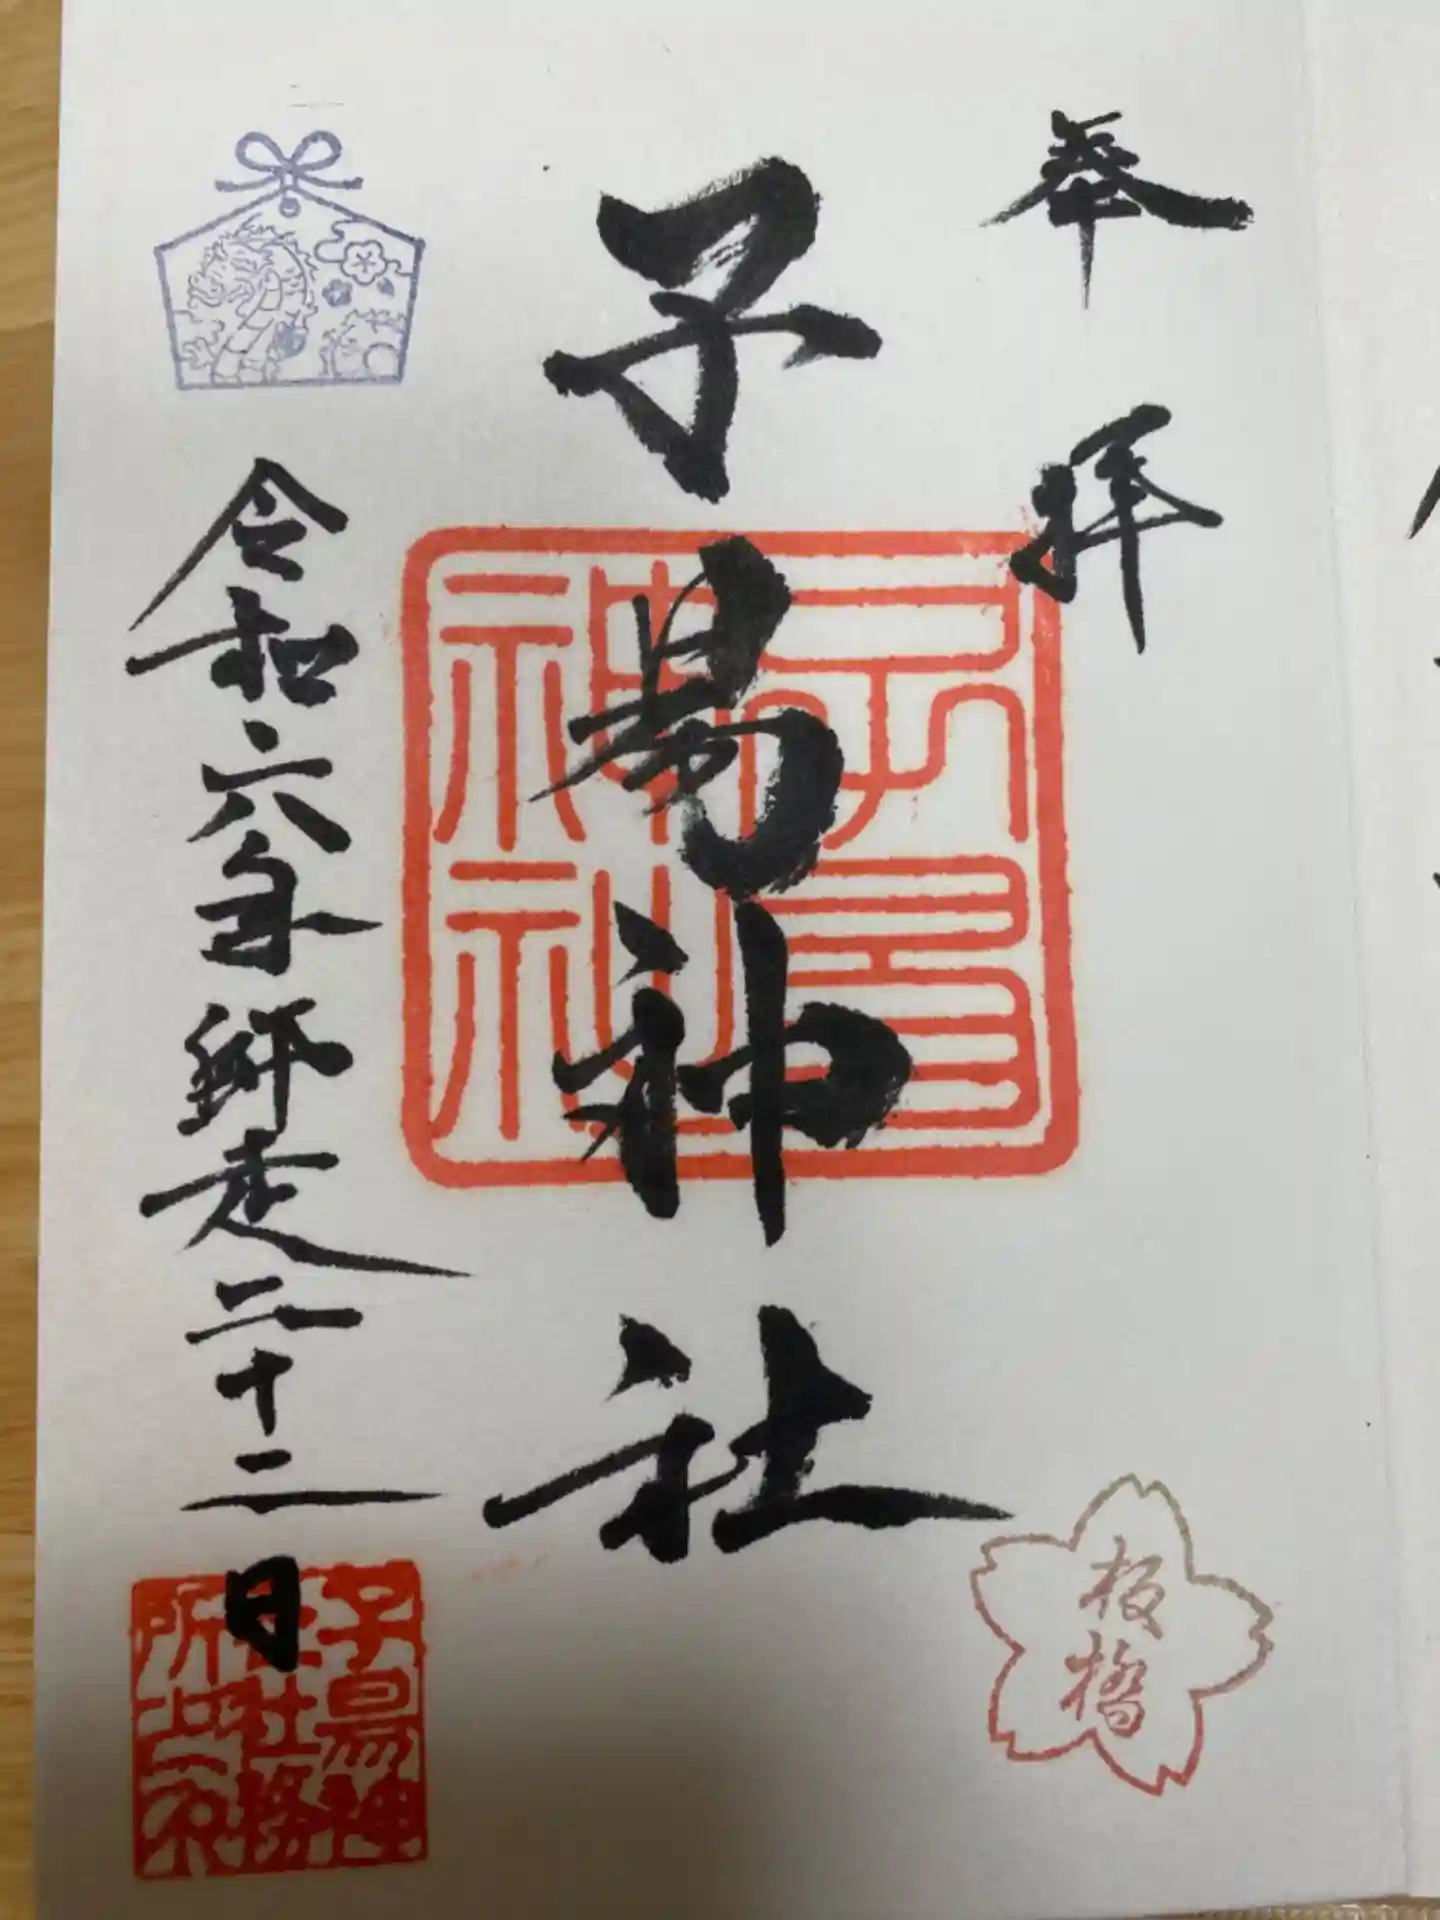 奉拝
子易神社
子易神社
板橋
令和六年師走二十二日
子易神
社務
所之印